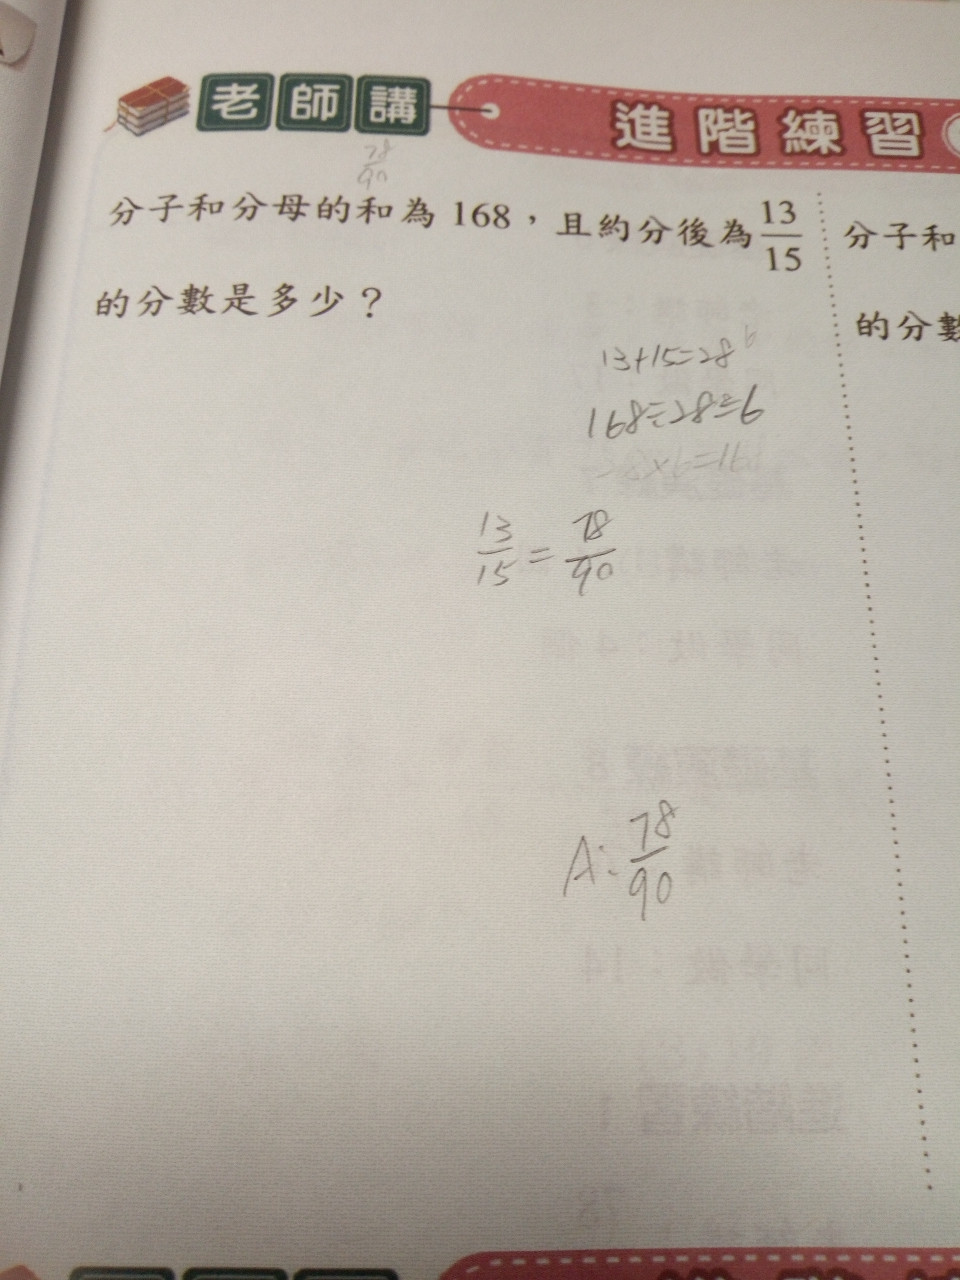 老師講
進階練習
78/90
分子和分母的和為 168，且約分後為 13/15
的分數是多少？
13+15=28
168÷28=6
13/15 = 78/90
A: 78/90
分子和
的分數